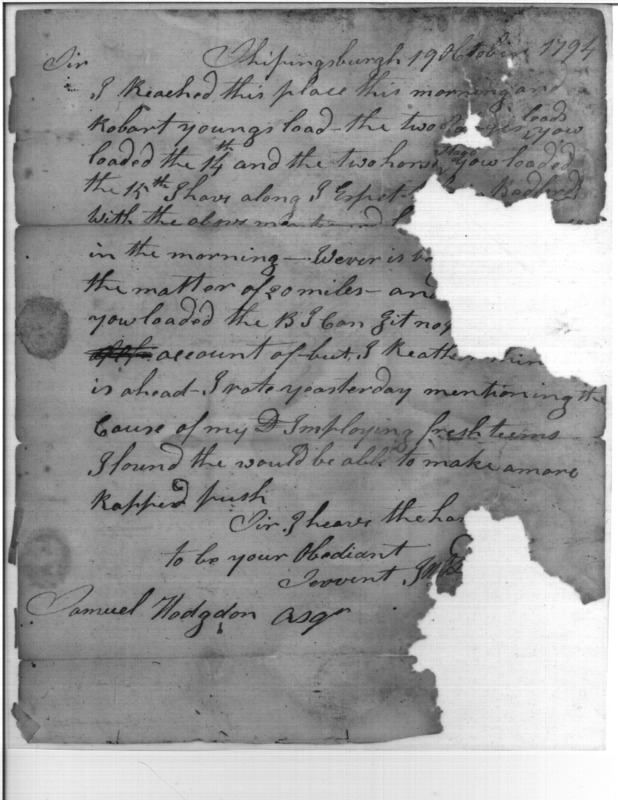 Sir Shipingsburgh 19 October 1794
I Reached this place this morning and
Robart youngs load - the two loads yow
loaded the 14th and the two horse yow loaded
the 15th I have along I Expet
With the above
in the morning - Wever is
the matter of 20 miles - and
yow loaded the 13 I Can git no
account of - but I Reather
is ahead - I rote yeasterday mentioning the
Cause of my Imploying fresh teems
I found the would be able to make a more
Rapped push
Sir, I heave the
to be your Obediant
Servent
Samuel Hodgdon Esqr